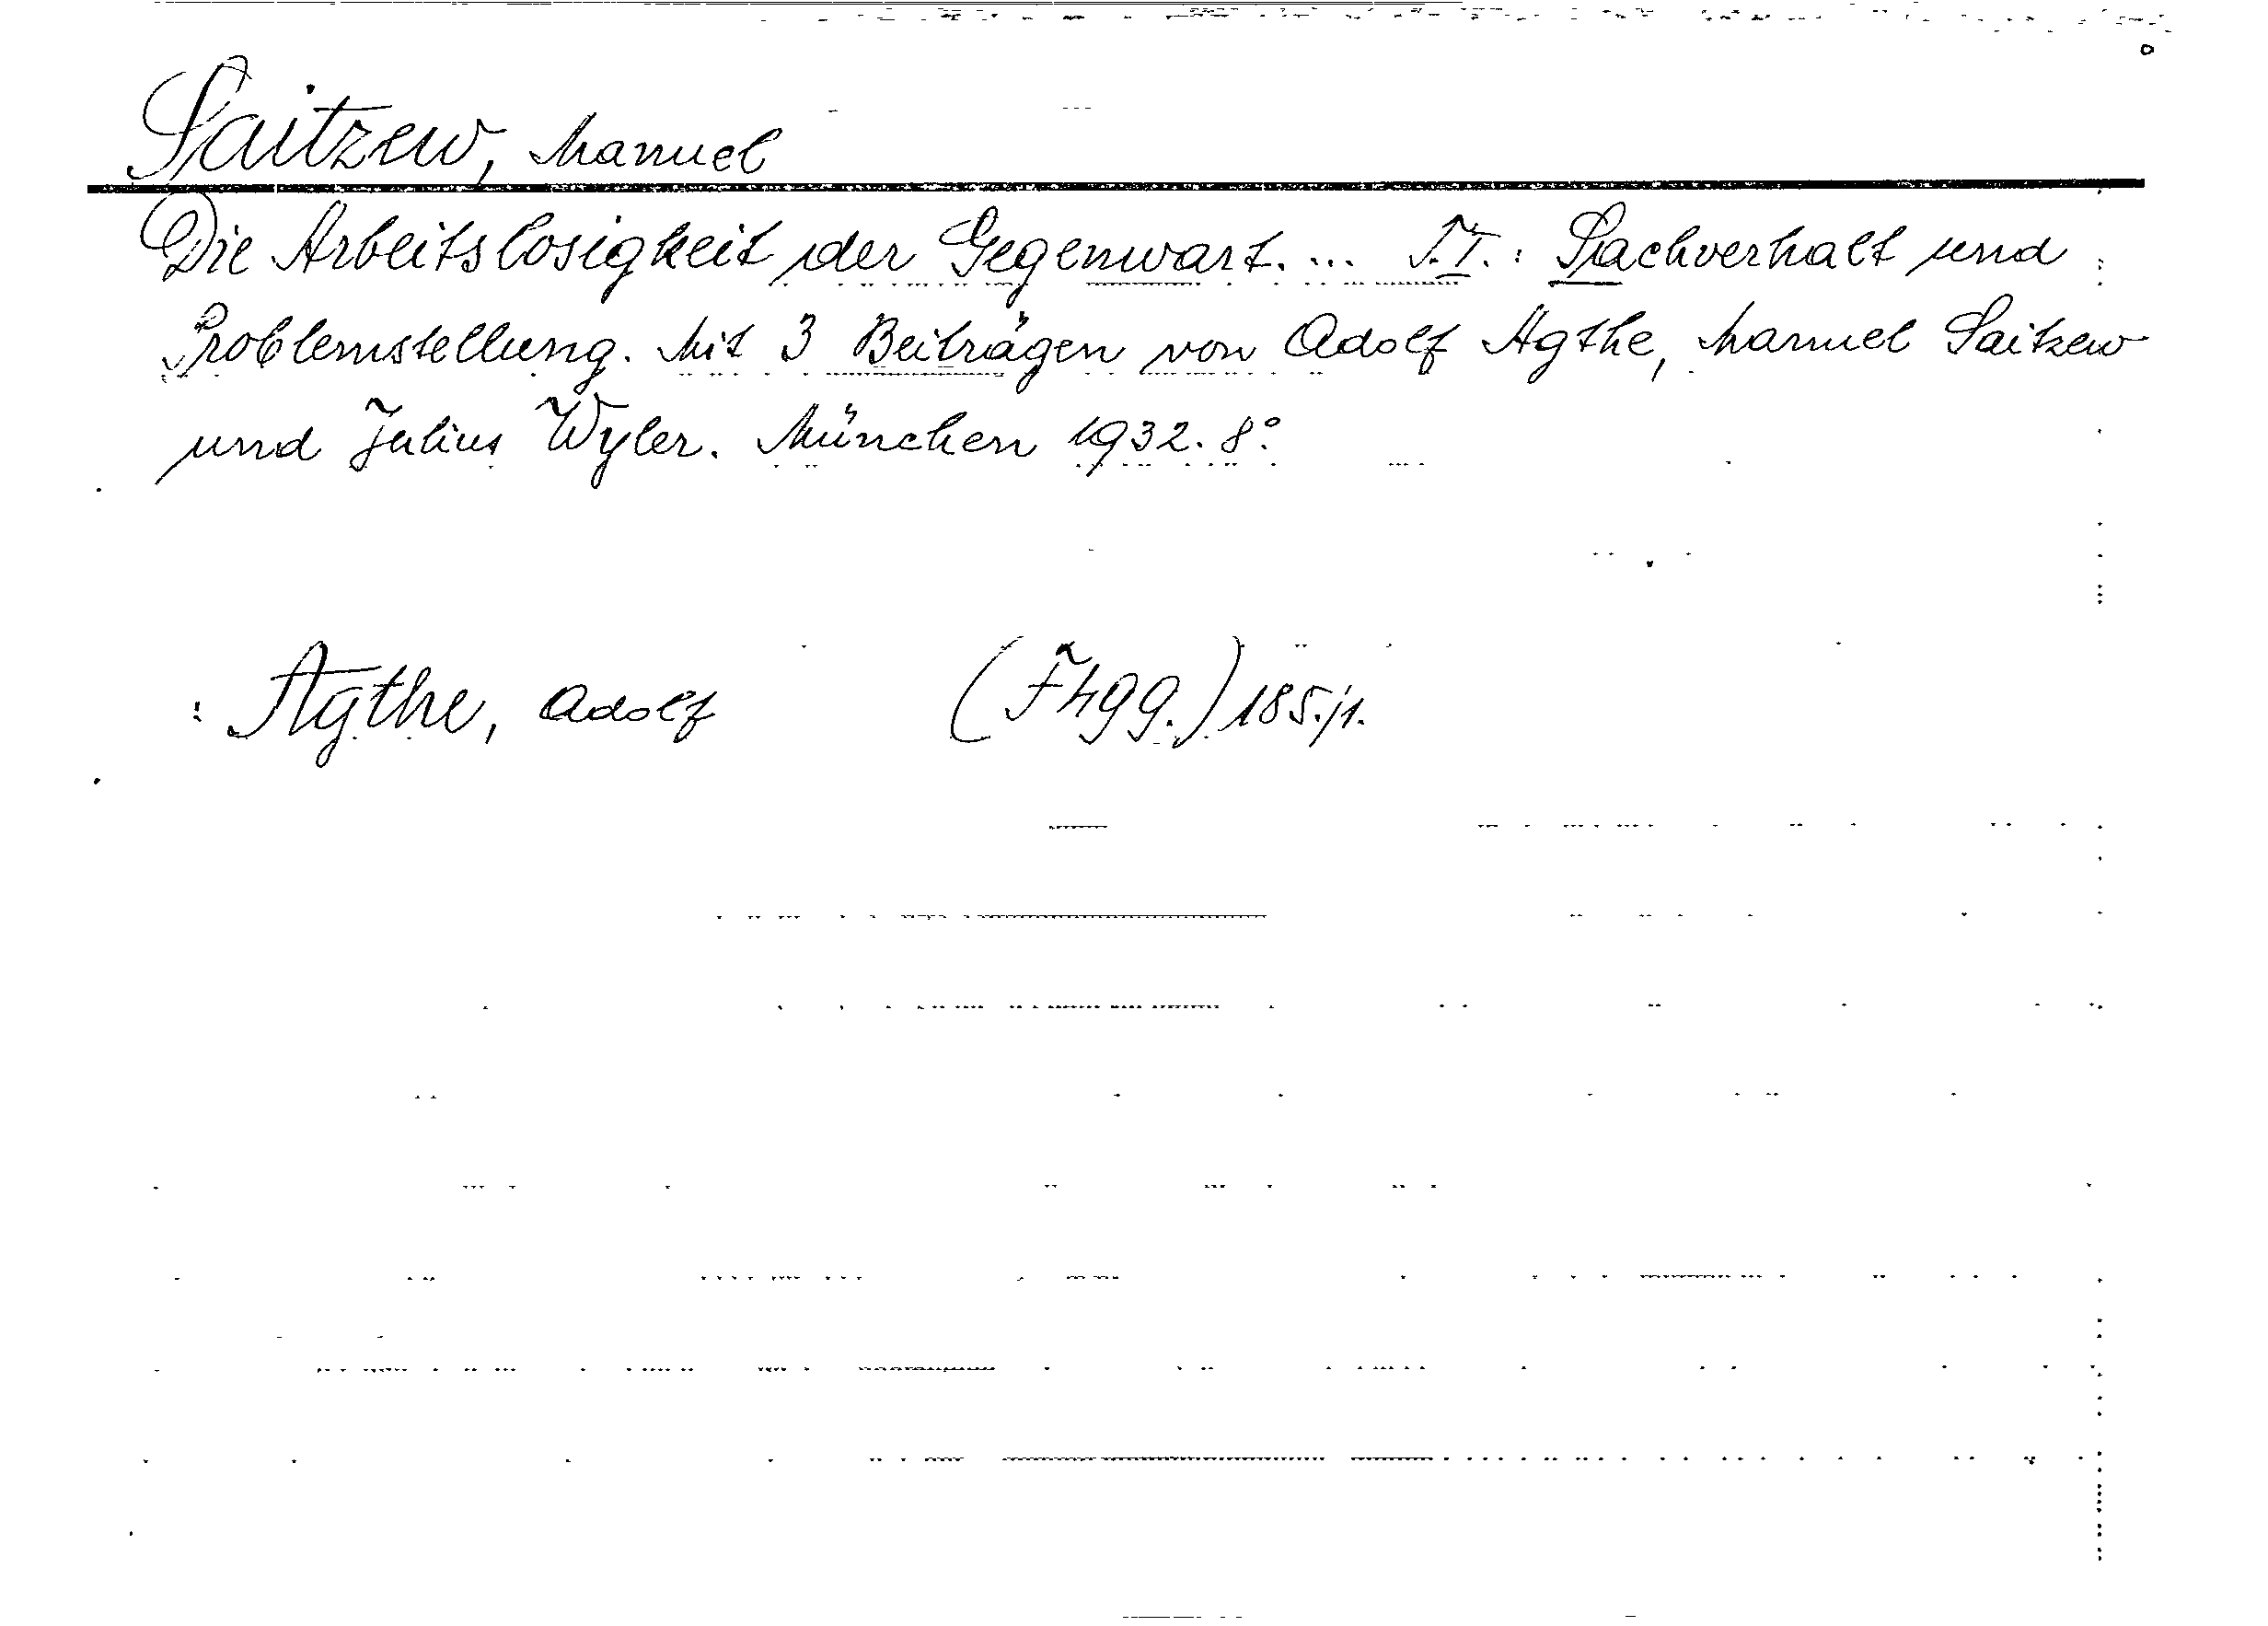 Saitzew, Manuel
Die Arbeitslosigkeit der Gegenwart. ... T.I.: Sachverhalt und
Problemstellung. Mit 3 Beiträgen von Adolf Agthe, Manuel Saitzew
und Julius Wyler. München 1932. 8°.
: Agthe, Adolf (Fhgg.) 185./1.